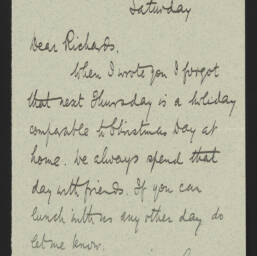 Saturday
Dear Richards,
When I wrote you I forgot
that next Thursday is a holiday
comparable to Christmas Day at
home. We always spend that
day with friends. If you can
lunch with us any other day do
let me know.